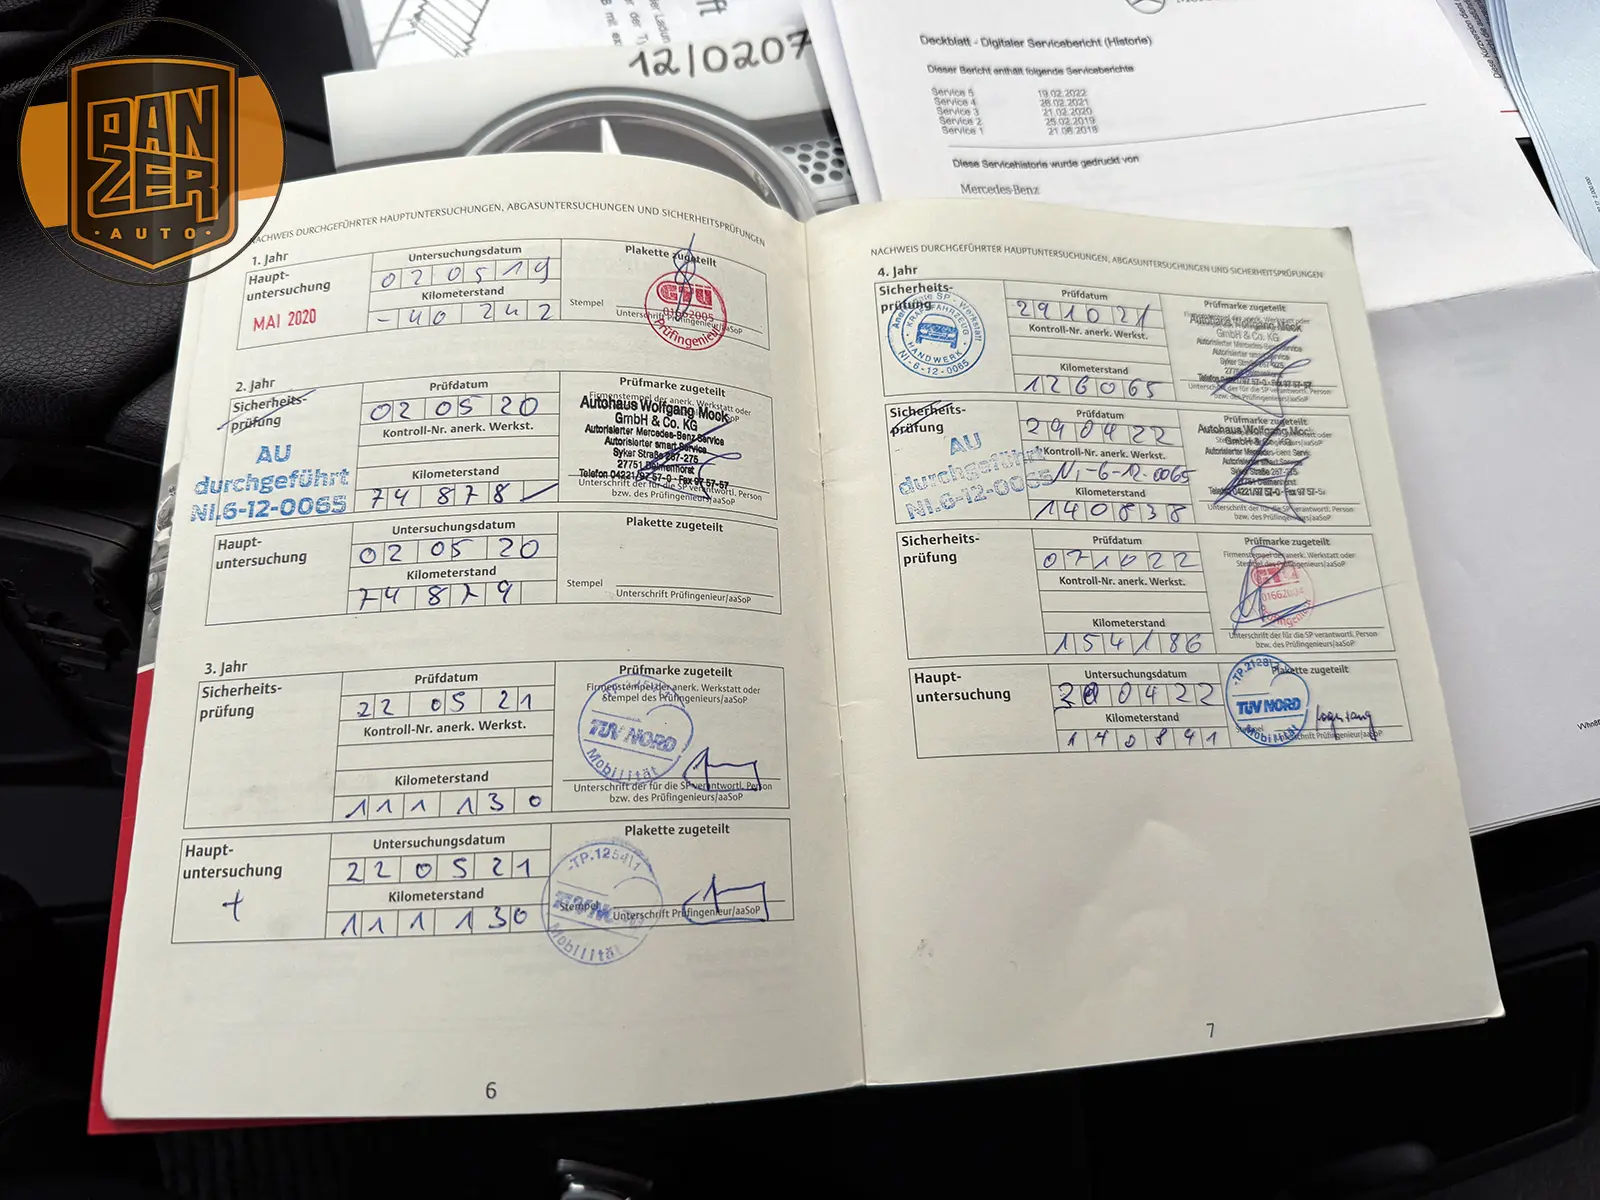 PANZER
·AUTO·
12/0207
Deckblatt - Digitaler Servicebericht (Historie)
Dieser Bericht enthält folgende Serviceberichte
Service 5 19.02.2022
Service 4 26.02.2021
Service 3 21.02.2020
Service 2 25.02.2019
Service 1 21.08.2018
Diese Servicehistorie wurde gedruckt von
Mercedes-Benz
NACHWEIS DURCHGEFÜHRTER HAUPTUNTERSUCHUNGEN, ABGASUNTERSUCHUNGEN UND SICHERHEITSPRÜFUNGEN
1. Jahr
Haupt-
untersuchung
MAI 2020
Untersuchungsdatum
020519
Kilometerstand
- 40 242
Plakette zugeteilt
Stempel
Unterschrift Prüfingenieur/aaSoP
GTÜ
01662005
Prüfingenieur
2. Jahr
Sicherheits-
prüfung
AU
durchgeführt
NI.6-12-0065
Prüfdatum
020520
Kontroll-Nr. anerk. Werkst.
Kilometerstand
74878
Prüfmarke zugeteilt
Autohaus Wolfgang Mock
GmbH & Co. KG
Autorisierter Mercedes-Benz Service
Autorisierter smart Service
Syker Straße 267-275
27751 Delmenhorst
Telefon 04221/97 57-0 · Fax 97 57-57
Unterschrift der für die SP verantwortl. Person
bzw. des Prüfingenieurs/aaSoP
Haupt-
untersuchung
Untersuchungsdatum
020520
Kilometerstand
74879
Plakette zugeteilt
Stempel
Unterschrift Prüfingenieur/aaSoP
3. Jahr
Sicherheits-
prüfung
Prüfdatum
220521
Kontroll-Nr. anerk. Werkst.
Kilometerstand
111130
Prüfmarke zugeteilt
Firmenstempel der anerk. Werkstatt oder
Stempel des Prüfingenieurs/aaSoP
TÜV NORD
Mobilität
Unterschrift der für die SP verantwortl. Person
bzw. des Prüfingenieurs/aaSoP
Haupt-
untersuchung
+
Untersuchungsdatum
220521
Kilometerstand
111130
Plakette zugeteilt
Stempel
Unterschrift Prüfingenieur/aaSoP
Mobilität
6
NACHWEIS DURCHGEFÜHRTER HAUPTUNTERSUCHUNGEN, ABGASUNTERSUCHUNGEN UND SICHERHEITSPRÜFUNGEN
4. Jahr
Sicherheits-
prüfung
KRAFTFAHRZEUG
HANDWERK
NI-6-12-0065
Prüfdatum
291021
Kontroll-Nr. anerk. Werkst.
Kilometerstand
126065
Prüfmarke zugeteilt
Autohaus Wolfgang Mock
GmbH & Co. KG
Sicherheits-
prüfung
AU
durchgeführt
NI.6-12-0065
Prüfdatum
290422
Kontroll-Nr. anerk. Werkst.
NI-6-12-0065
Kilometerstand
140838
Prüfmarke zugeteilt
Autohaus Wolfgang Mock
Unterschrift der für die SP verantwortl. Person
bzw. des Prüfingenieurs/aaSoP
Sicherheits-
prüfung
Prüfdatum
071022
Kontroll-Nr. anerk. Werkst.
Kilometerstand
154186
Prüfmarke zugeteilt
Firmenstempel der anerk. Werkstatt oder
Unterschrift der für die SP verantwortl. Person
bzw. des Prüfingenieurs/aaSoP
Haupt-
untersuchung
Untersuchungsdatum
290422
Kilometerstand
140841
Plakette zugeteilt
TÜV NORD
Mobilität
7